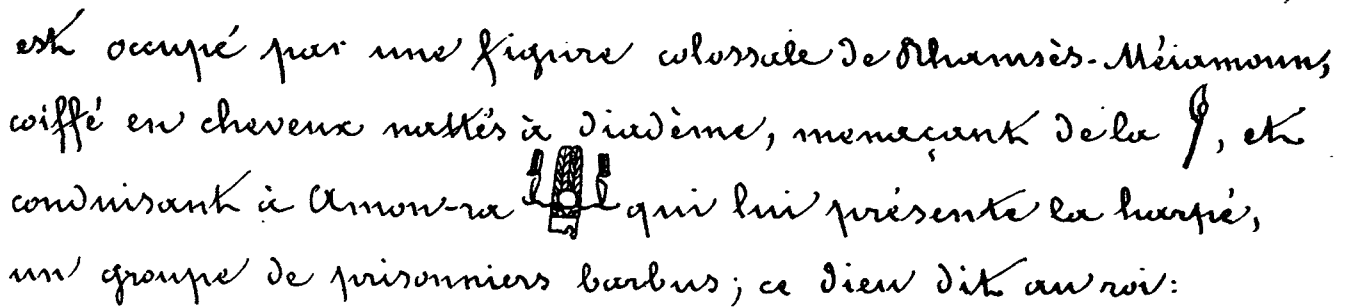 est occupé par une figure colossale de Rhamsès-Méiamoun,
coiffé en cheveux nattés à diadème, menaçant de la , et
conduisant à Amon-ra qui lui présente la harpé,
un groupe de prisonniers barbus; ce dieu dit au roi: